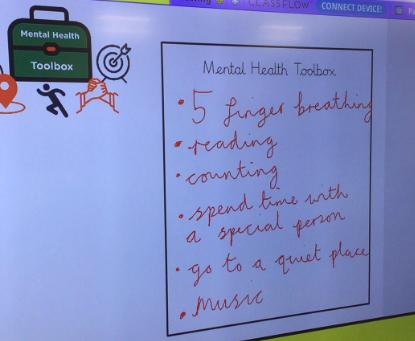 CLASSFLOW
CONNECT DEVICE!
Mental Health
Toolbox
Mental Health Toolbox
• 5 finger breathing
• reading
• counting
• spend time with
a special person
• go to a quiet place
• music